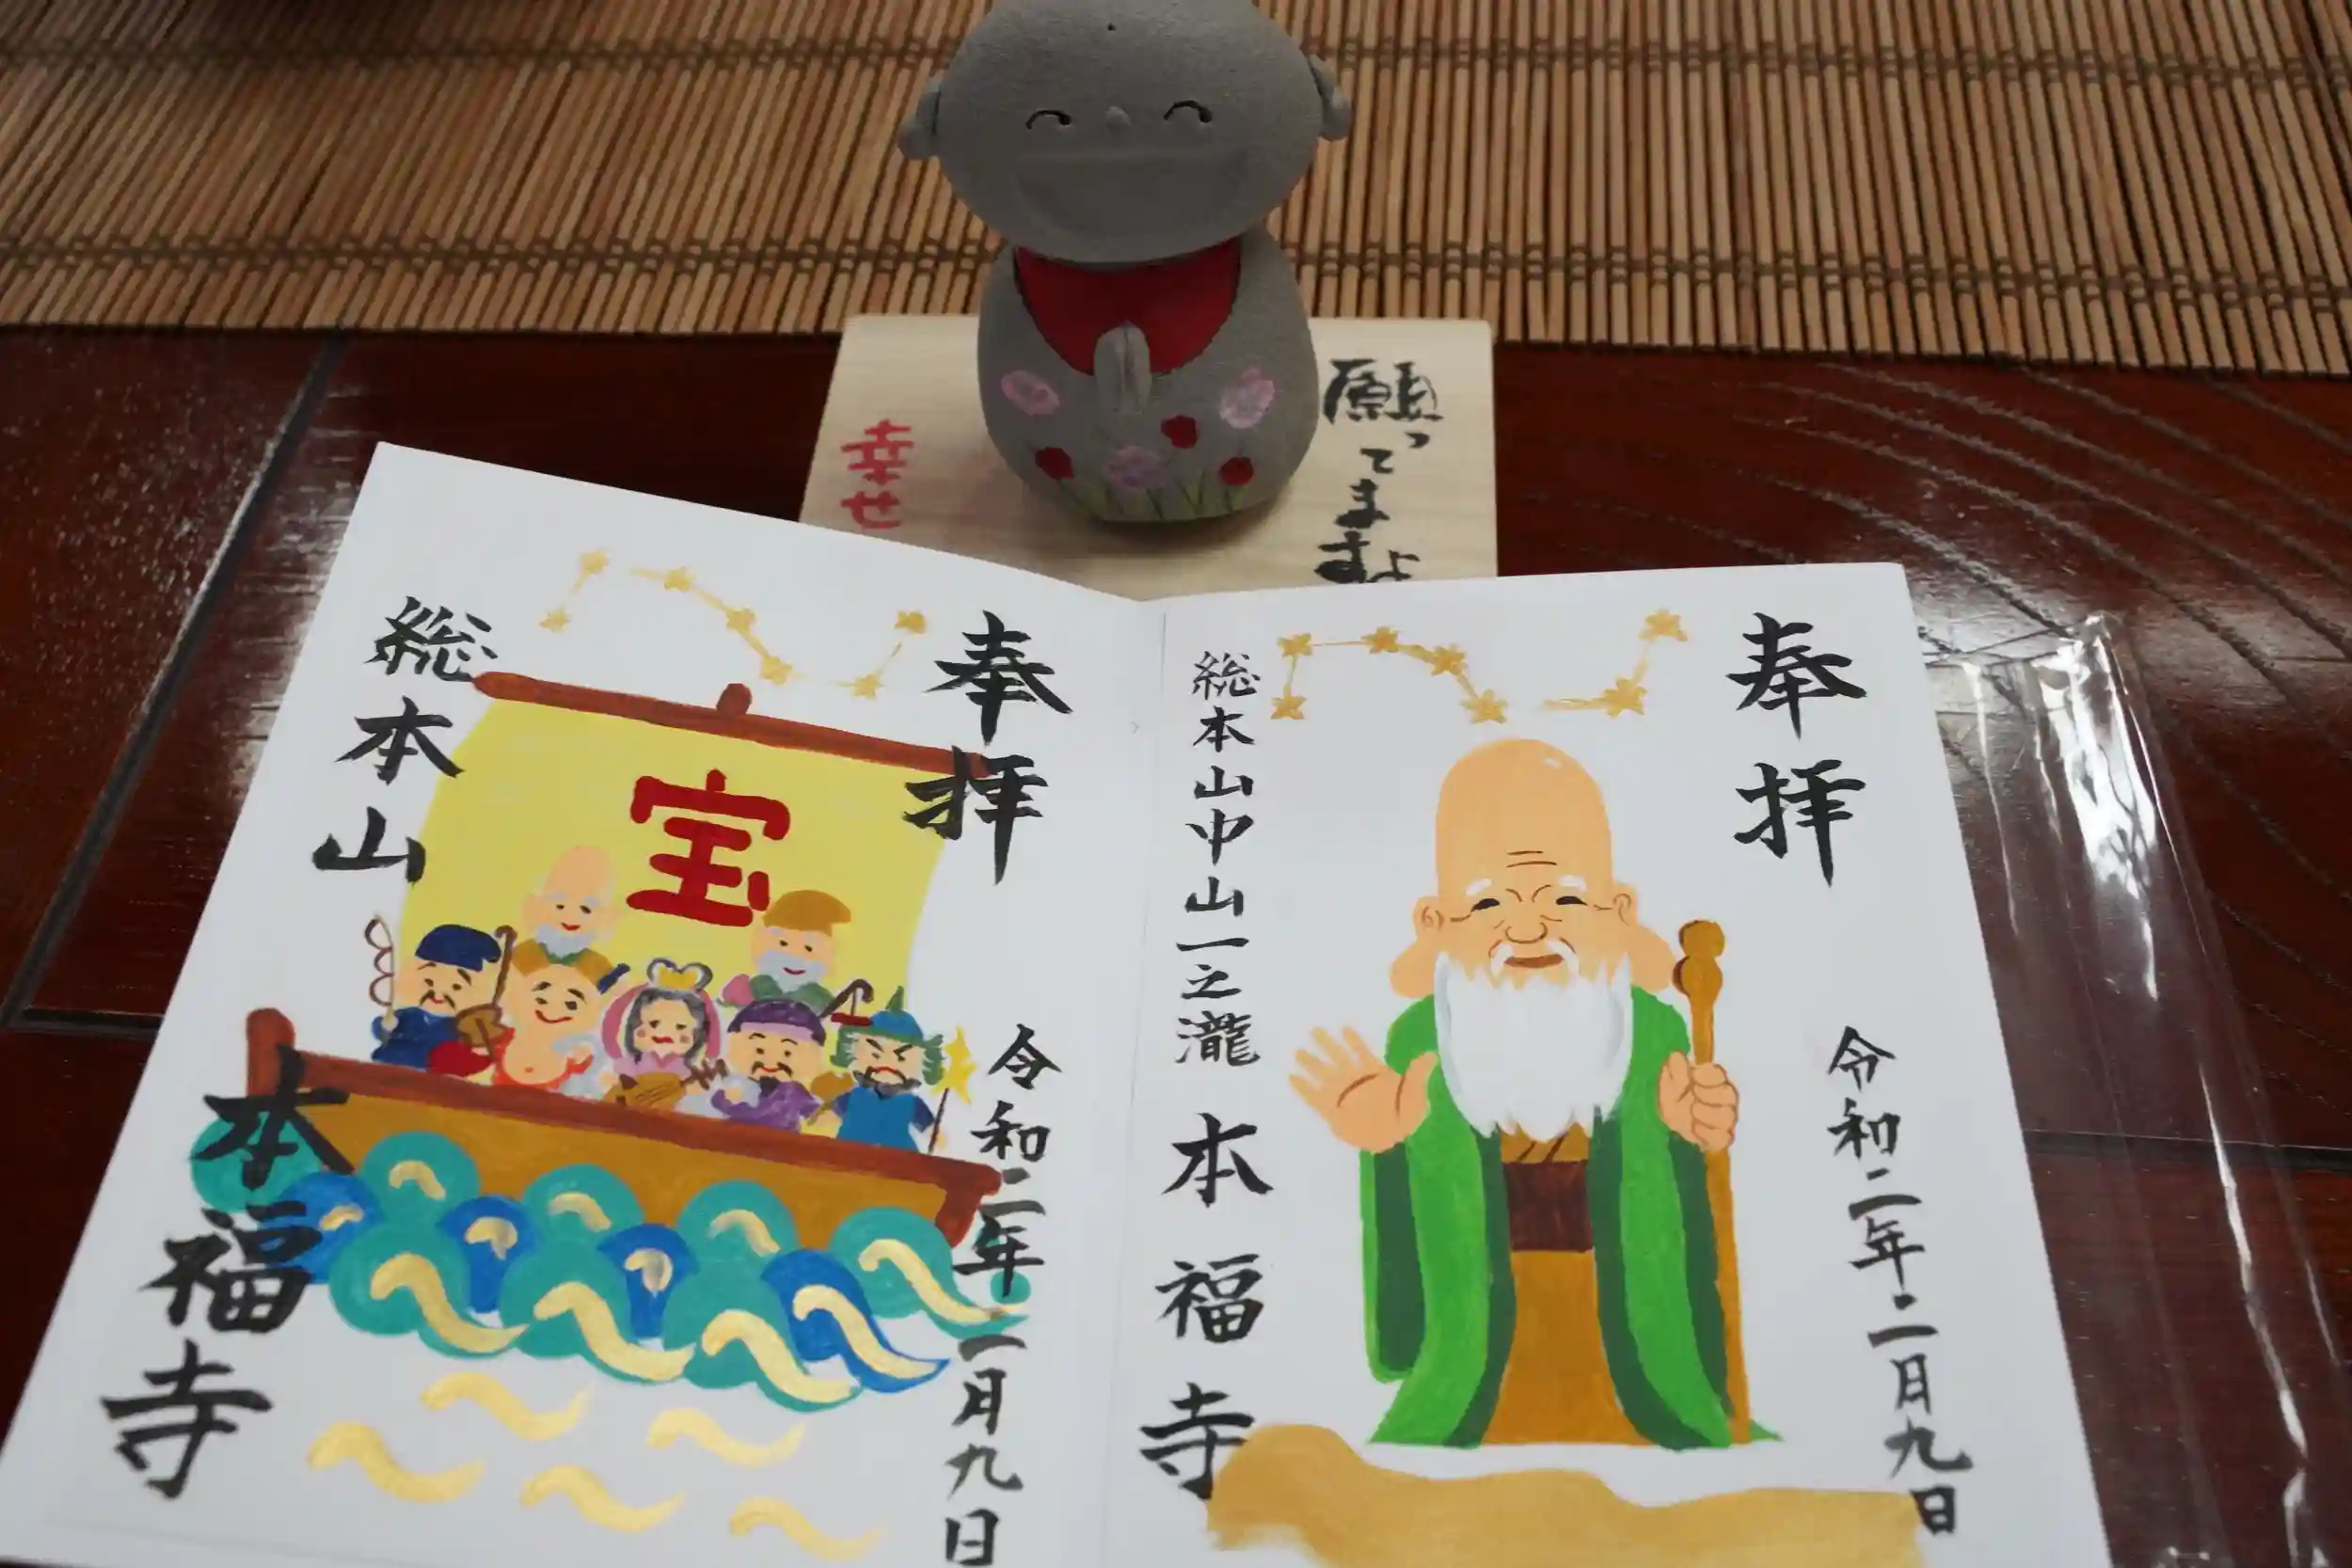 願ってますよ
幸せ
奉拝
令和二年二月九日
総本山中山一之瀧
本福寺
奉拝
宝
令和二年二月九日
総本山
本福寺